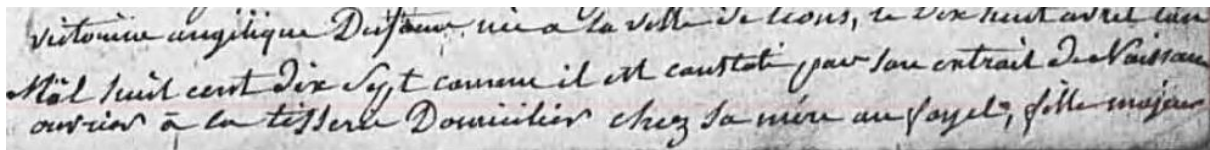 victoirine angélique Dufour née a la ville de Lions, le dix huit avril l'an
Mil huit cent dix Sept comme il est constaté par son extrait de Naissance
ouvrier à la tisserie Domicilier chez sa mère au fayel, fille majeur